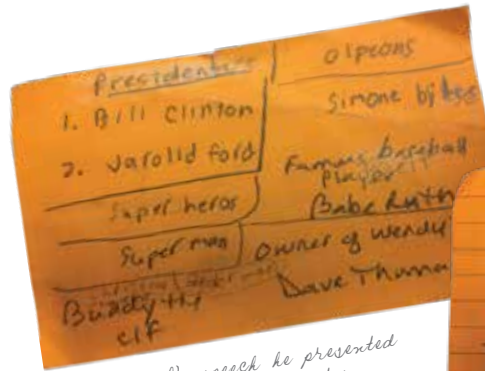 Presidenties
1. Bill Clinton
2. Varolid ford
Super heros
Super man
Buddy the
elf
olpeons
Simone biles
Famous baseball
player
Babe Ruth
owner of Wendy
Dave Thomas
speech he presented